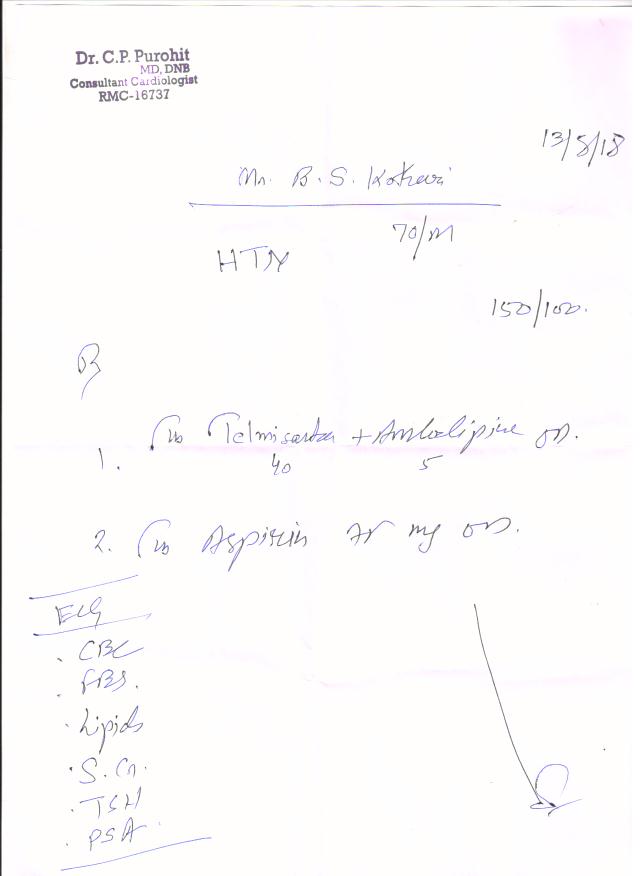 Dr. C.P. Purohit
MD, DNB
Consultant Cardiologist
RMC-16737
13/8/18
Mr. B. S. Kothari
70/M
HTN
150/100.
Rx
1. Tab Telmisartan + Amlodipine OD.
40 5
2. Tab Aspirin 75 mg OD.
ECG
. CBC
. FBS.
. Lipids
. S. Cr.
. TSH
. PSA.